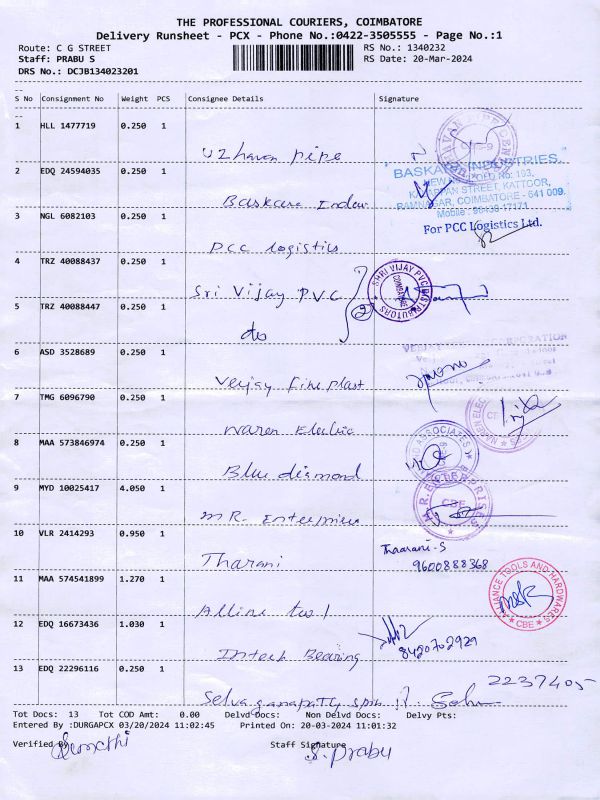 THE PROFESSIONAL COURIERS, COIMBATORE
Delivery Runsheet - PCX - Phone No.:0422-3505555 - Page No.:1
Route: C G STREET
RS No.: 1340232
Staff: PRABU S
RS Date: 20-Mar-2024
DRS No.: DCJB134023201
S No Consignment No Weight PCS Consignee Details Signature
1 HLL 1477719 0.250 1
Uzhavan pipe
2 EDQ 24594035 0.250 1
BASKARA INDUSTRIES,
KATTOOR,
RAMNAGAR, COIMBATORE - 641 009.
Baskara Indus
3 NGL 6082103 0.250 1
For PCC Logistics Ltd.
PCC logistics
4 TRZ 40088437 0.250 1
Sri Vijay P.V.C
SHRI VIJAY PVC DISTRIBUTORS
COIMBATORE
5 TRZ 40088447 0.250 1
(2)
do
6 ASD 3528689 0.250 1
Verjay fine plast
7 TMG 6096790 0.250 1
Naren Electric
8 MAA 573846974 0.250 1
Blue diamond
ASSOCIATES
9 MYD 10025417 4.050 1
M.R. Enterprises
M.R. ENTERPRISES
CBE
10 VLR 2414293 0.950 1
Thaarani-S
9600888368
Tharani
11 MAA 574541899 1.270 1
ALLIANCE TOOLS AND HARDWARES
CBE
12 EDQ 16673436 1.030 1
8420702929
Intech Bearing
13 EDQ 22296116 0.250 1
2237405
Selva ganapathy
Tot Docs: 13 Tot COD Amt: 0.00 Delvd Docs: Non Delvd Docs: Delvy Pts:
Entered By :DURGAPCX 03/20/2024 11:02:45 Printed On: 20-03-2024 11:01:32
Verified By
Staff Signature
S. Prabu